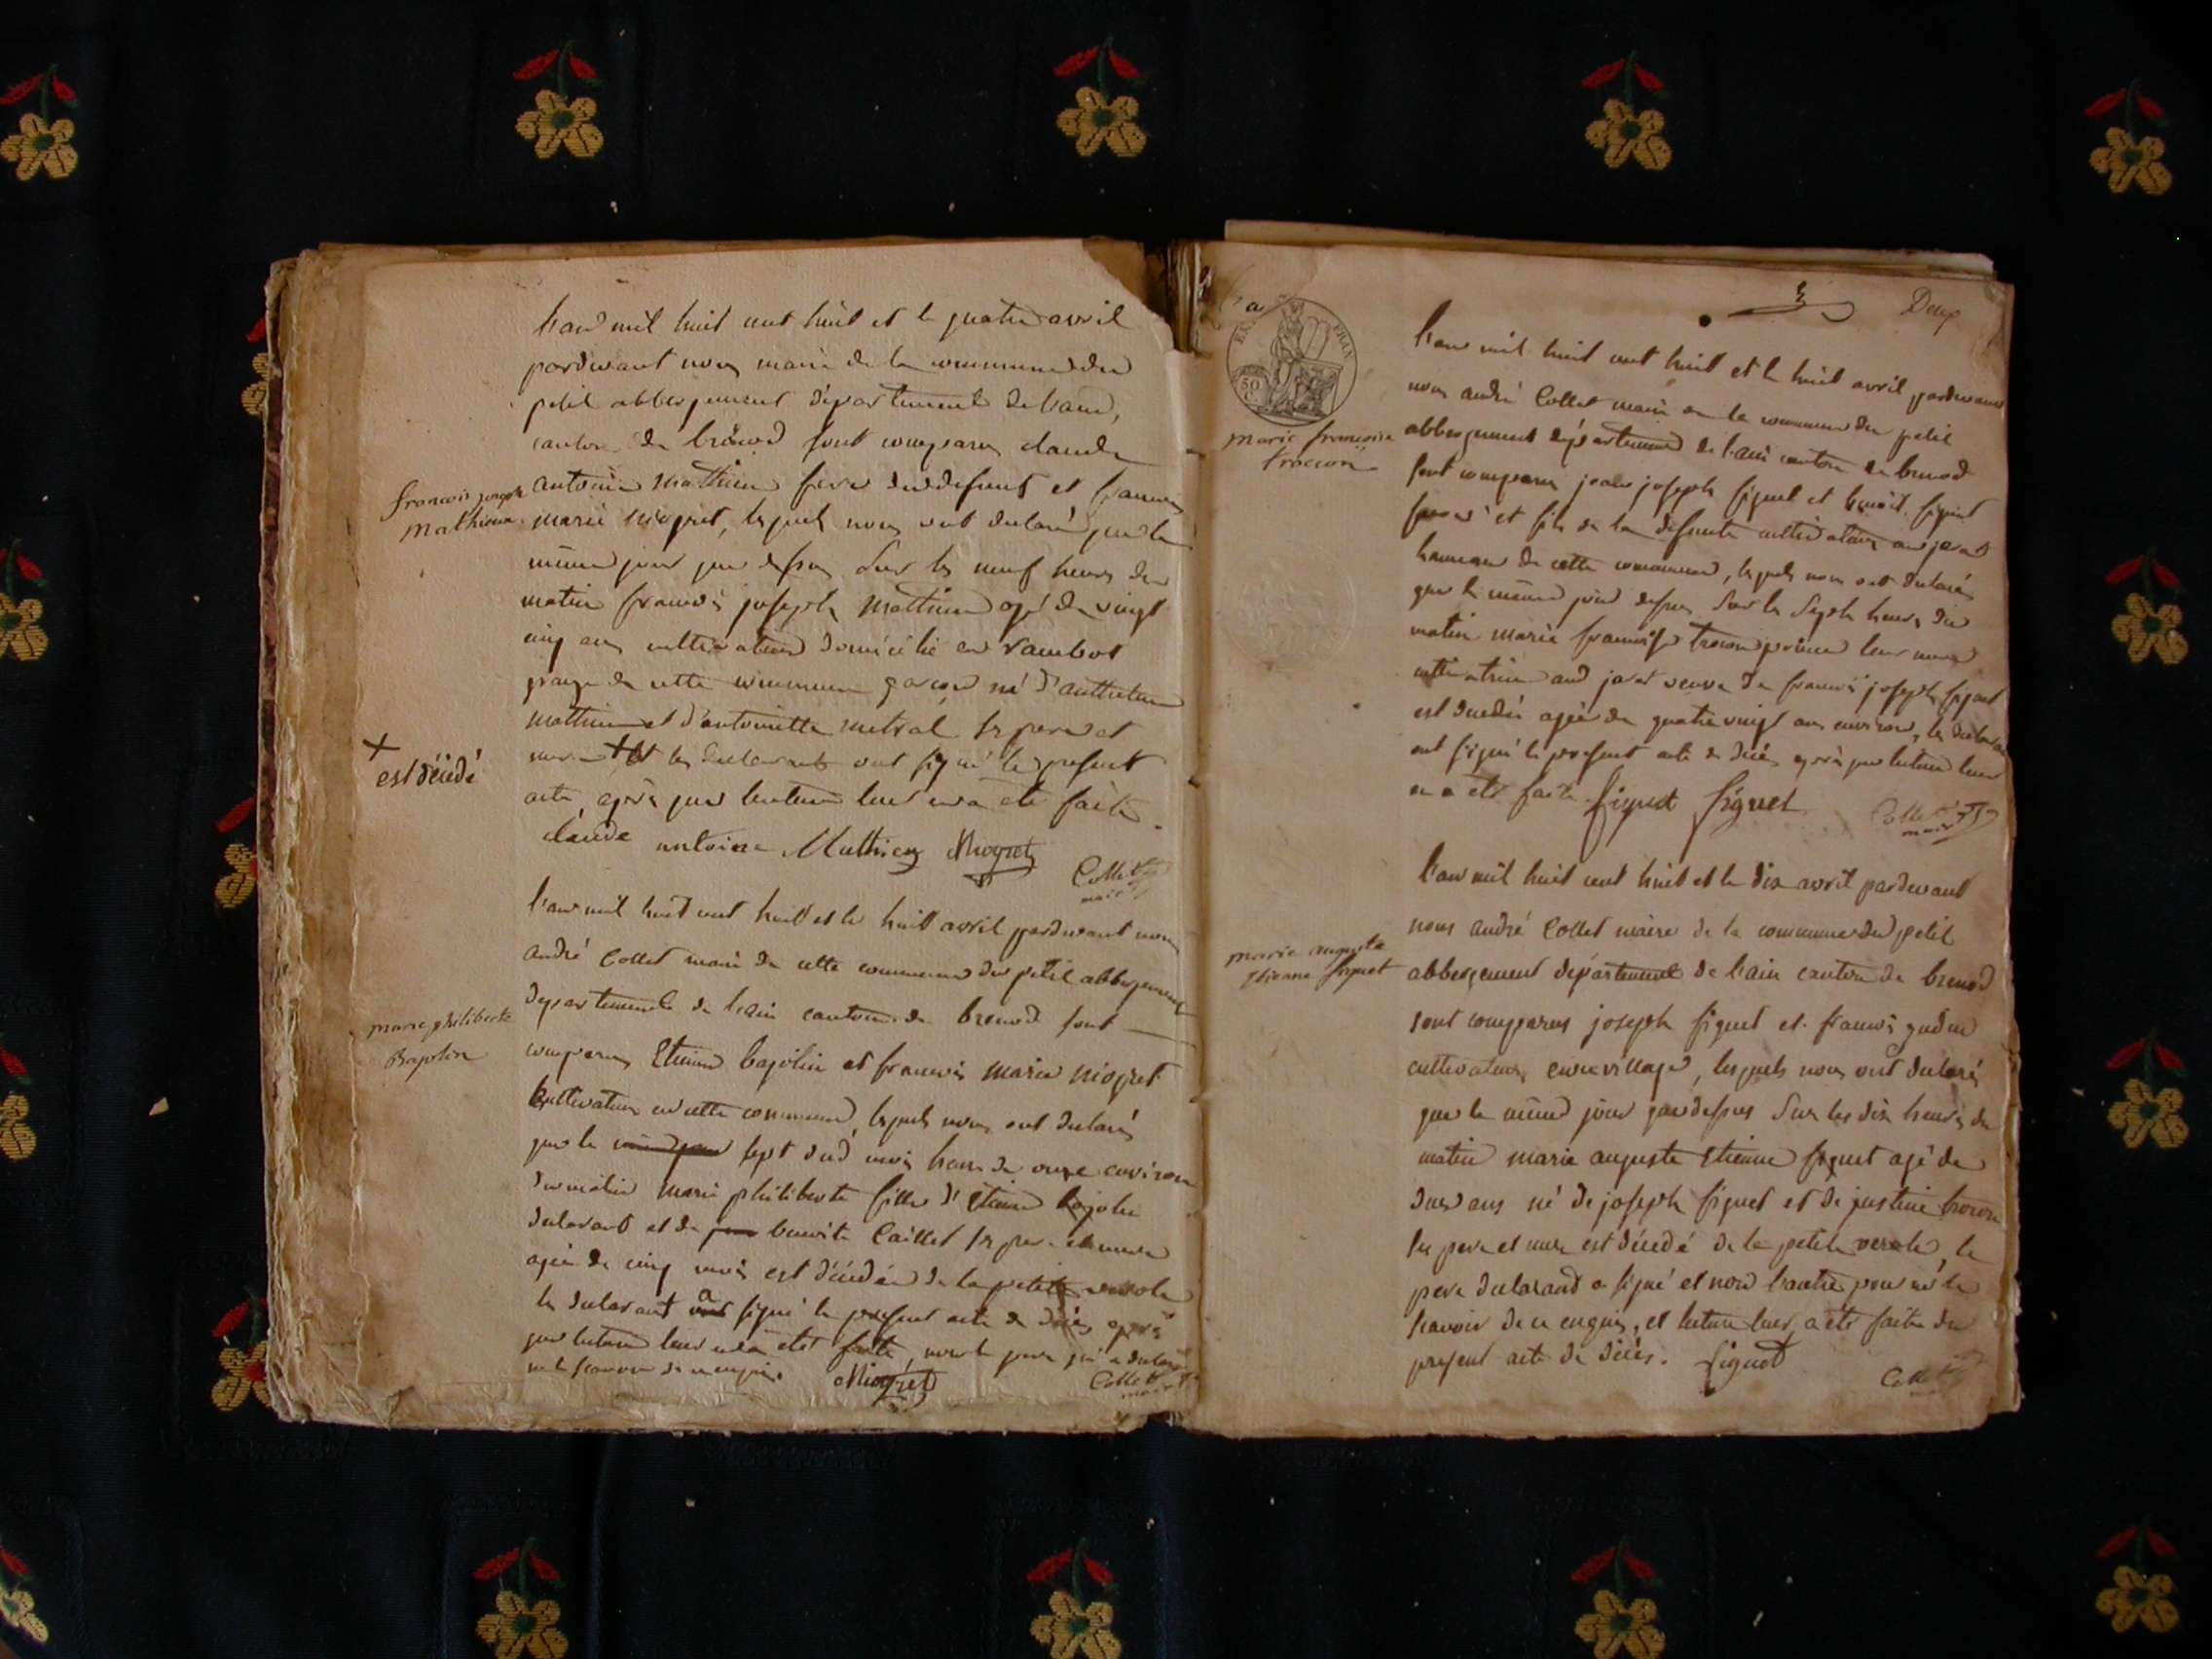 l'an mil huit cent huit et le quatre avril
pardevant nous maire de la commune du
petit abbergement département de l'ain,
canton de brénod sont comparus claude
françois joseph
mathieu
antoine Mathieu frere du defunt et francois
marie niogret, lesquels nous ont declaré que le
même jour que dessus sur les neuf heures du
matin francois joseph Mathieu agé de vingt
cinq ans cultivateur domicilié en
grange de cette commune garçon né d'
mathieu et d'antoinette metral ses pere et
mere + et les declarants ont signé le present
+
est décédé
acte, après que lecture leur en a été faite.
claude antoine Mathieu Niogret
Collet
maire
l'an mil huit cent huit et le huit avril pardevant nous
andré Collet maire de cette commune du petit abbergement
departement de l'ain canton de brenod sont
marie philiberte
Bajolin
comparus Etienne bajolin et francois marie niogret
Cultivateurs en cette commune, lesquels nous ont declarés
que le sept du mois heure de onze environ
du matin marie philiberte fille d'Etienne bajolin
declarant et de benoite Caillet ses pere et mere
agée de cinq mois est décédée de la petite verole
le declarant a signé le present acte de décès après
que lecture leur en a été faite, non le pere qui a declaré
ne le scavoir de ce enquis. Niogret
Collet
maire
Deux
a
FRAN
50
C
l'an mil huit cent huit et le huit avril pardevant
nous andré Collet maire de la commune du petit
marie françoise
trocon
abbergement département de l'ain canton de brenod
sont comparus joseph figuet et benoit figuet
freres et fils de la defunte cultivateurs au jarat
hameau de cette commune, lesquels nous ont declarés
que le même jour dessus sur les sept heures du
matin marie françoise trocon leur mere
cultivatrice aud jarat veuve de francois joseph figuet
est decedée agée de quatre vingt ans environ, les declarants
ont signé le present acte de décès après que lecture leur
en a été faite. figuet figuet
Collet
maire
l'an mil huit cent huit et le dix avril pardevant
nous andré Collet maire de la commune du petit
marie auguste
Etienne figuet
abbergement département de l'ain canton de brenod
sont comparus joseph figuet et francois
cultivateurs en ce village, lesquels nous ont declarés
que le même jour que dessus sur les dix heures du
matin marie auguste Etienne figuet agé de
deux ans né de joseph figuet et de justine trocon
ses pere et mere est décédé de la petite verole, le
pere declarand a signé et non l'autre pour ne le
scavoir de ce enquis, et lecture leur a été faite du
present acte de décès. figuet
Collet